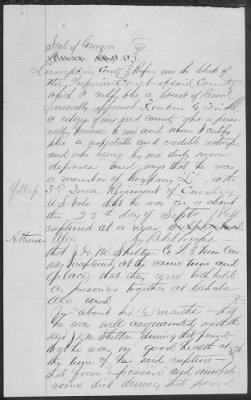 State of Georgia
Lumpkin County Before me the clerk of
the Superior Court of said County
which I certify is a court of Record
personally appeared Reuben G.
a citizen of said county who is perso-
nally known to me and whom I certify
is a respectable and credible witness
and who being by me duly sworn
deposes and says that he was
a member of Company "L" in the
3rd Tenn Regiment of Cavalry
US Vols that he was on or about
the 25th day of Septr 1864
captured at or near
Athens Ala by Rebel troops
that J. M. Shelton Co. 3 Tenn Cav
was captured at the same time and
place, that they were both held
as prisoners together at Cahaba
Ala and
for about six (6) months - that
he was well acquainted with the
said J. M. Shelton during that period
that he was in good health at
the time of his said capture -
that from exposure and
some diet during that period